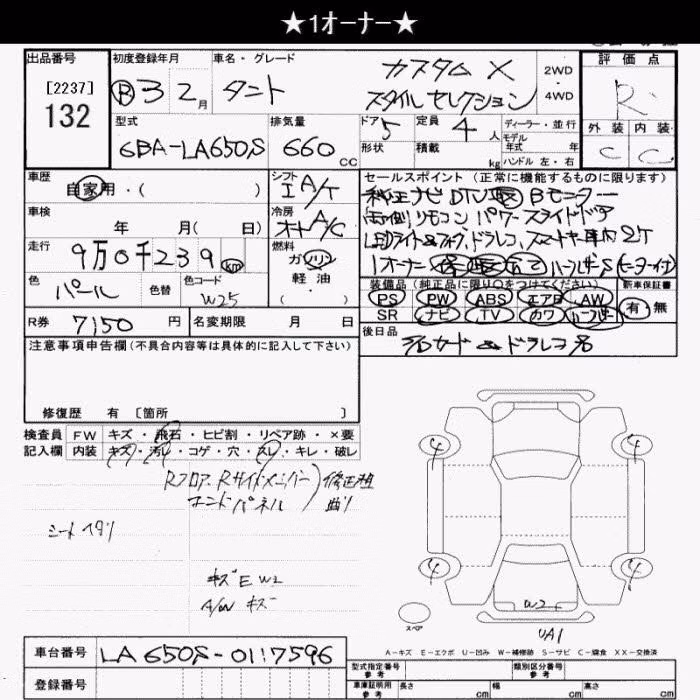 ★1オーナー★
出品番号 初度登録年月 車名・グレード 評価点
[2237]
132
Ⓡ3 2月 タント カスタム X 2WD R
スタイルセレクション 4WD
型式 排気量 ドア 定員 ディーラー・並行 外装 内装
6BA-LA650S 660cc 5 4人 モデル年式 年 C C
形状 積載 kg ハンドル 左・右
車歴 シフト セールスポイント (正常に機能するものに限ります)
自家用・( ) I A/T 純正ナビ DTV Bモニター
車検 冷房 リモコン パワースライドドア
年 月( 日) オートA/C LEDライト&フォグ、ドラレコ、スマートキー車内2ケ
走行 燃料 1オーナー
9万0千239km ガソリン
軽油
・( )
色 色替 色コード 装備品 (純正品に限り○をつけてください) 新車保証書
パール W25 PS PW ABS エアB AW 有・無
SR ナビ TV カワ
R券 7150円 名変期限 月 日
注意事項申告欄 (不具合内容等は具体的に記入して下さい) 後日品
&ドラレコ
修復歴 有 [箇所 ]
検査員 FW キズ・飛石・ヒビ割・リペア跡・×要
記入欄 内装 キズ・汚レ・コゲ・穴・スレ・キレ・破レ
Rフロア、Rサイドメンバー 修正
エンドパネル 曲り
シートヘタリ
キズE W2
A/W キズ
W2
UA1
スペア
A-キズ E-エクボ U-凹み W-補修跡 S-サビ C-腐食 XX-交換済
車台番号 LA650S-0117596 型式指定番号 類別区分番号
参考 参考
登録番号 車庫証明用 長さ cm 幅 cm 高さ cm
参考